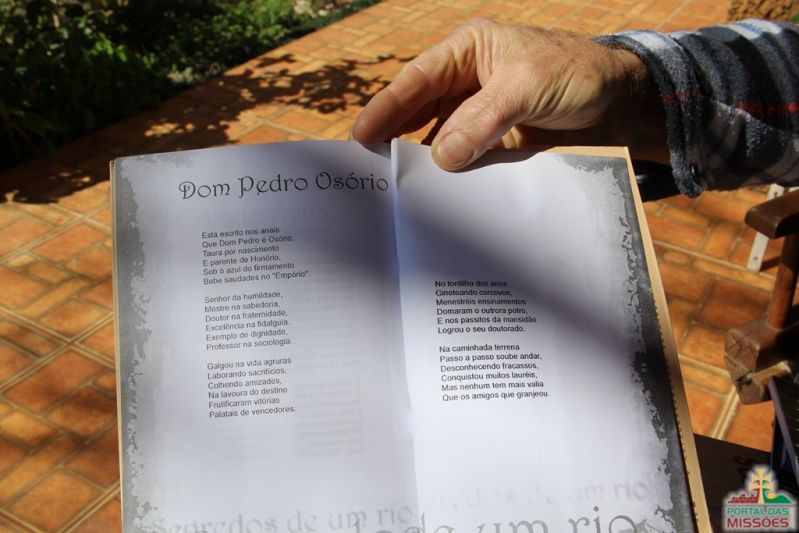 Dom Pedro Osório
Está escrito nos anais
Que Dom Pedro é Osório,
Taura por nascimento
E parente de Honório,
Sob o azul do firmamento
Bebe saudades no "Empório".
Senhor da humildade,
Mestre na sabedoria,
Doutor na fraternidade,
Excelência na fidalguia,
Exemplo de dignidade,
Professor na sociologia.
Galgou na vida agruras
Laborando sacrifícios,
Colhendo amizades,
Na lavoura do destino
Frutificaram vitórias
Palatais de vencedores.
No tordilho dos anos
Gineteando corcovos,
Menestréis ensinamentos
Domaram o outrora potro,
E nos passitos da mansidão
Logrou o seu doutorado.
Na caminhada terrena
Passo a passo soube andar,
Desconhecendo fracassos,
Conquistou muitos lauréis,
Mas nenhum tem mais valia
Que os amigos que granjeou.
Segredos de um rio
de um rio
PORTAL DAS
MISSÕES